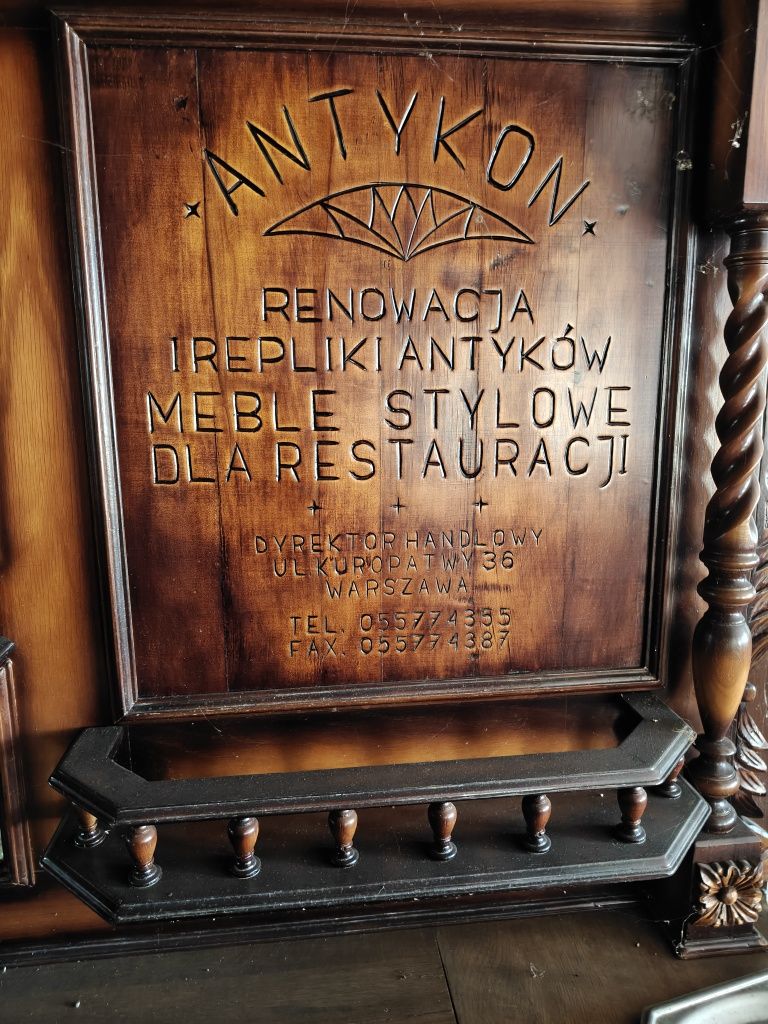 ANTYKON
RENOWACJA
I REPLIKI ANTYKÓW
MEBLE STYLOWE
DLA RESTAURACJI
DYREKTOR HANDLOWY
UL KUROPATWY 36
WARSZAWA
TEL. 055774355
FAX. 055774387